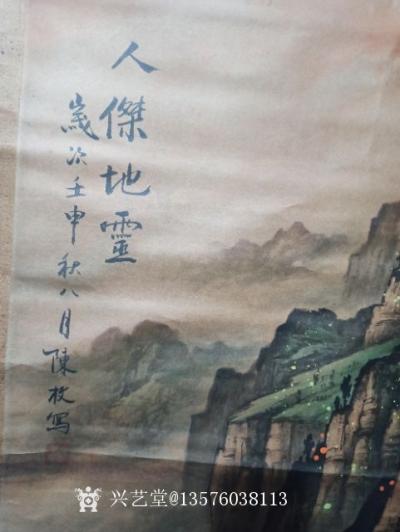 人傑地靈
歲次壬申秋八月陳枚寫
兴艺堂@13576038113